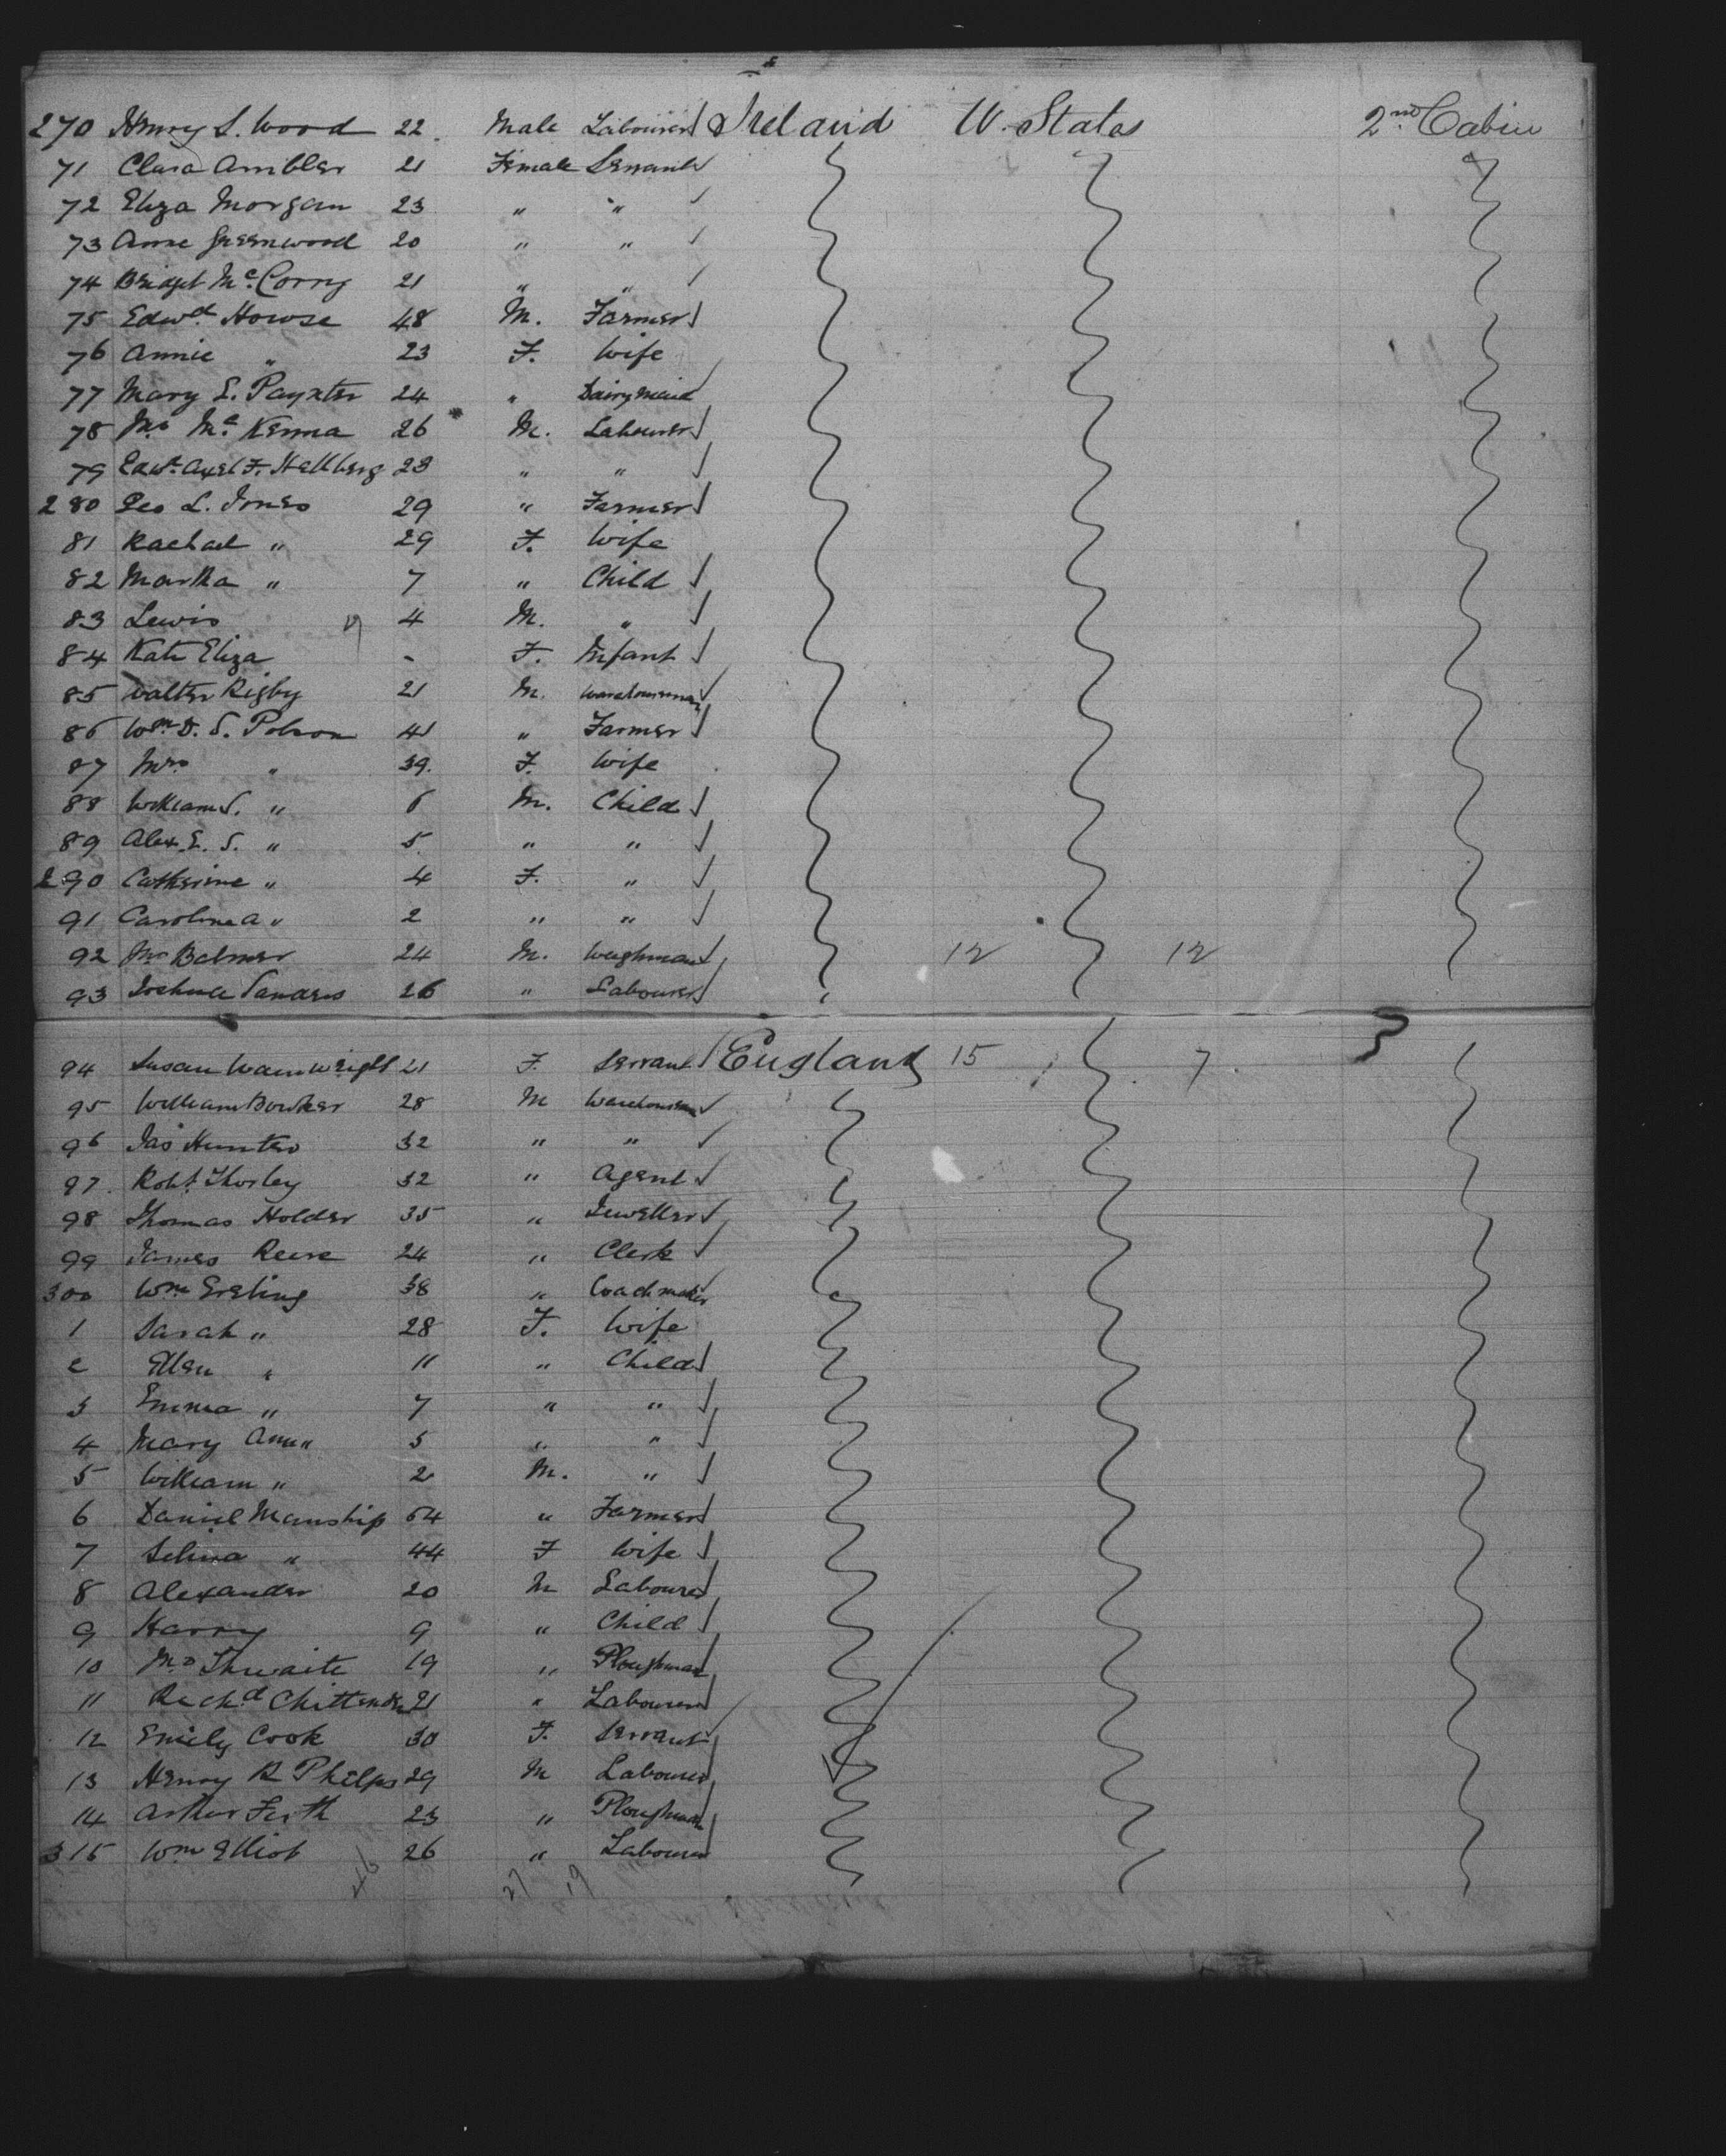 270 Henry S. Wood 22. Male Labourer Ireland U. States 2nd Cabin
71 Clara Ambler 21 Female Servant
72 Eliza Morgan 23 " "
73 Anne Greenwood 20 " "
74 Bridget Mc Corry 21 " "
75 Edwd Howse 48 M. Farmer
76 Annie " 23 F. Wife
77 Mary L. Paynter 24 " Dairy Maid
78 Mr Mc Kenna 26 M. Labourer
79 Axel F. Hallberg 23 " "
280 Geo L. Jones 29 " Farmer
81 Rachael " 29 F. Wife
82 Martha " 7 " Child
83 Lewis 4 M. "
84 Kate Eliza - F. Infant
85 Walter Rigby 21 M. Warehouseman
86 Wm D. S. Polson 41 " Farmer
87 Mrs " 39. F. Wife
88 William S. " 6 M. Child
89 Alex. E. S. " 5 " "
290 Catherine " 4 F. "
91 Caroline A " 2 " "
92 Mr Balmer 24 M. 12 12
93 Joshua 26 " Labourer
94 Susan Wainwright 21 F. Servant England 15 7
95 William Bowker 28 M Warehouseman
96 Jas Hunter 32 " "
97. Robt Thorley 32 " Agent
98 Thomas Holder 35 " Jeweller
99 James Reeve 24 " Clerk
300 Wm 38 " Coachmaker
1 Sarah " 28 F. Wife
2 Ellen " 11 " Child
3 Emma " 7 " "
4 Mary Ann " 5 " "
5 William " 2 M. "
6 Daniel Manship 54 " Farmer
7 Selina " 44 F Wife
8 Alexander 20 M Labourer
9 Harry 9 " Child
10 Mr Thwaite 19 " Ploughman
11 Richd Chittenden 21 " Labourer
12 Emily Cook 30 F. Servant
13 Henry R Phelps 29 M Labourer
14 Arthur Firth 23 " Ploughman
315 Wm Elliot 26 " Labourer
46 27 19